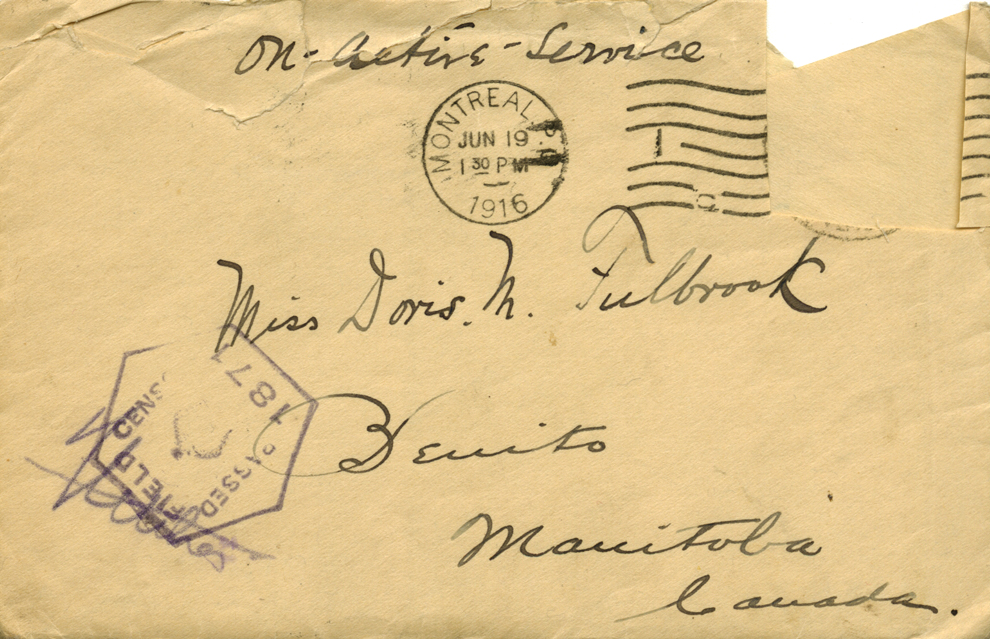 On-Active-Service
MONTREAL, P.Q.
JUN 19
1 30 PM
1916
Miss Doris. M. Fulbrook
PASSED FIELD CENSO
1871
Benito
Manitoba
Canada.